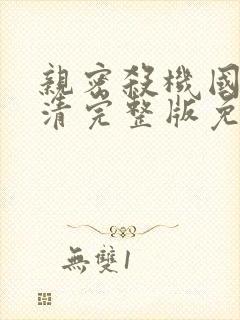 親密殺機國
清完整版免
無雙1